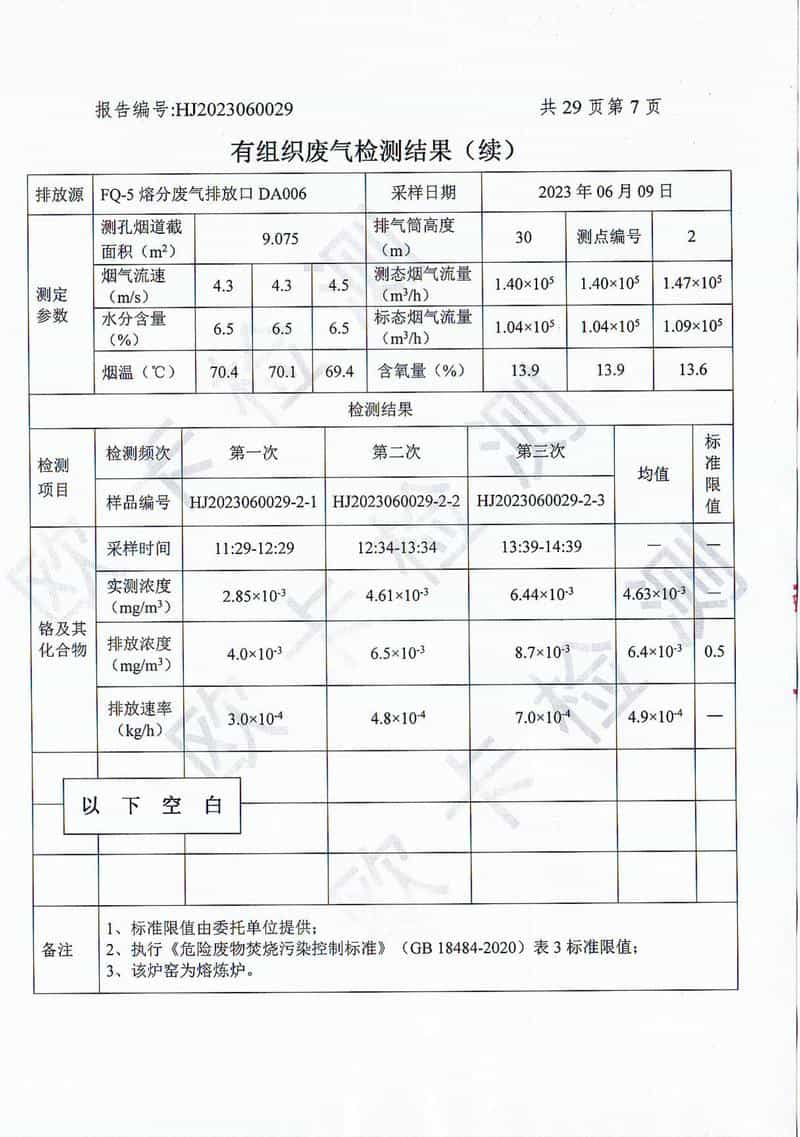 报告编号:HJ2023060029 共 29 页第 7 页
有组织废气检测结果（续）
排放源 FQ-5 熔分废气排放口 DA006 采样日期 2023 年 06 月 09 日
测定参数
测孔烟道截面积（m²） 9.075 排气筒高度（m） 30 测点编号 2
烟气流速（m/s） 4.3 4.3 4.5 测态烟气流量（m³/h） 1.40×10⁵ 1.40×10⁵ 1.47×10⁵
水分含量（%） 6.5 6.5 6.5 标态烟气流量（m³/h） 1.04×10⁵ 1.04×10⁵ 1.09×10⁵
烟温（℃） 70.4 70.1 69.4 含氧量（%） 13.9 13.9 13.6
检测结果
检测项目 检测频次 第一次 第二次 第三次 均值 标准限值
样品编号 HJ2023060029-2-1 HJ2023060029-2-2 HJ2023060029-2-3
铬及其化合物
采样时间 11:29-12:29 12:34-13:34 13:39-14:39 — —
实测浓度（mg/m³） 2.85×10⁻³ 4.61×10⁻³ 6.44×10⁻³ 4.63×10⁻³ —
排放浓度（mg/m³） 4.0×10⁻³ 6.5×10⁻³ 8.7×10⁻³ 6.4×10⁻³ 0.5
排放速率（kg/h） 3.0×10⁻⁴ 4.8×10⁻⁴ 7.0×10⁻⁴ 4.9×10⁻⁴ —
以下空白
备注
1、标准限值由委托单位提供;
2、执行《危险废物焚烧污染控制标准》（GB 18484-2020）表 3 标准限值;
3、该炉窑为熔炼炉。
欧卡检测
欧卡检测
欧卡检测